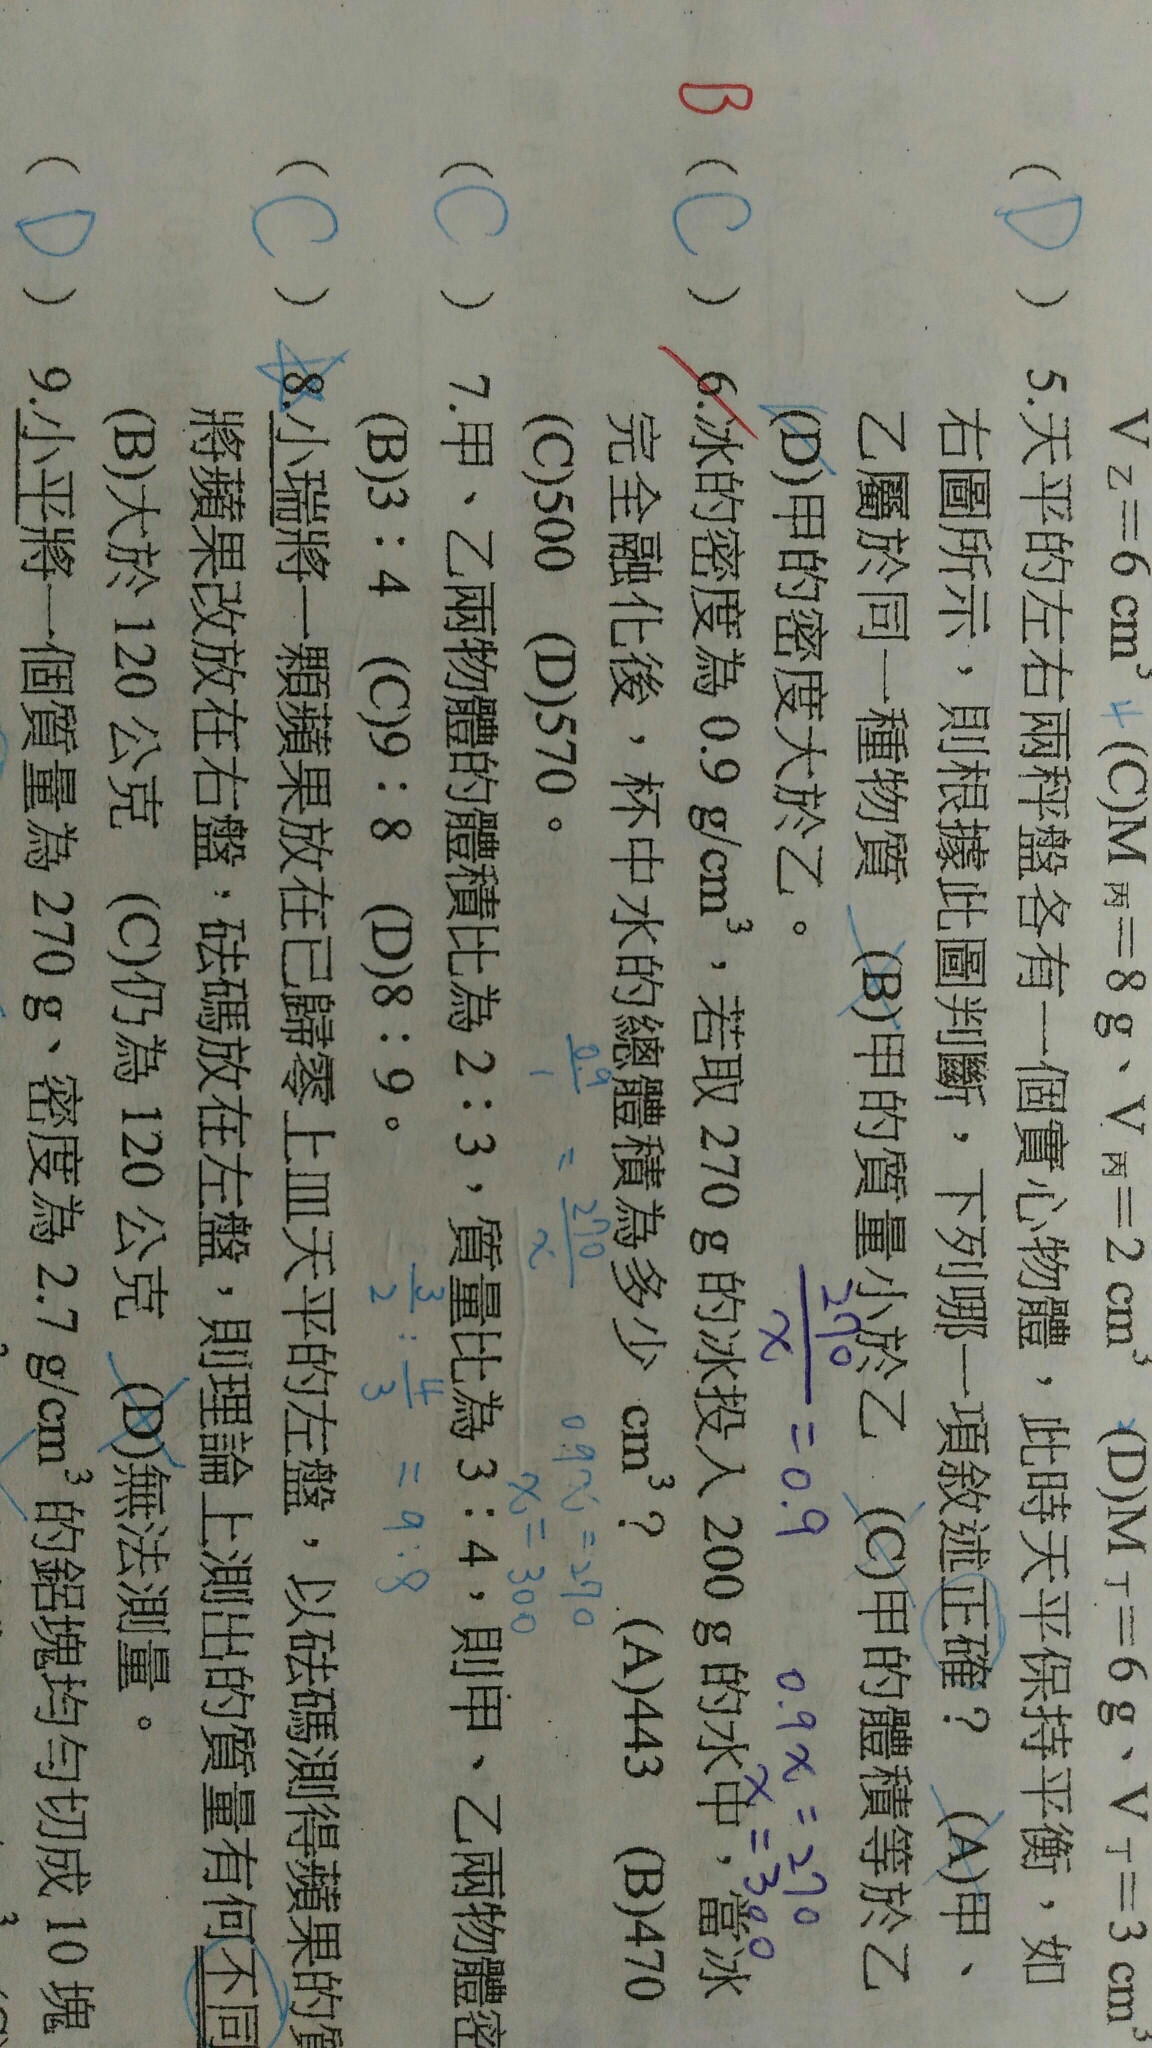 V 乙=6 cm³ 4 (C)M 丙=8 g、V 丙=2 cm³ (D)M 丁=6 g、V 丁=3 cm³
(D) 5.天平的左右兩秤盤各有一個實心物體，此時天平保持平衡，如
右圖所示，則根據此圖判斷，下列哪一項敘述正確？ (A)甲、
乙屬於同一種物質 (B)甲的質量小於乙 (C)甲的體積等於乙
(D)甲的密度大於乙。
270/x =0.9 0.9x=270
x=300
B (C) 6.冰的密度為 0.9 g/cm³，若取 270 g 的冰投入 200 g 的水中，當冰
完全融化後，杯中水的總體積為多少 cm³？ (A)443 (B)470
(C)500 (D)570。
0.9/1 = 270/x 0.9x=270
x=300
(C) 7.甲、乙兩物體的體積比為 2：3，質量比為 3：4，則甲、乙兩物體密
(B)3：4 (C)9：8 (D)8：9。
3/2 : 4/3 = 9:8
(C) 8.小瑞將一顆蘋果放在已歸零上皿天平的左盤，以砝碼測得蘋果的質
將蘋果改放在右盤；砝碼放在左盤，則理論上測出的質量有何不同
(B)大於 120 公克 (C)仍為 120 公克 (D)無法測量。
(D) 9.小平將一個質量為 270 g、密度為 2.7 g/cm³的鋁塊均勻切成 10 塊